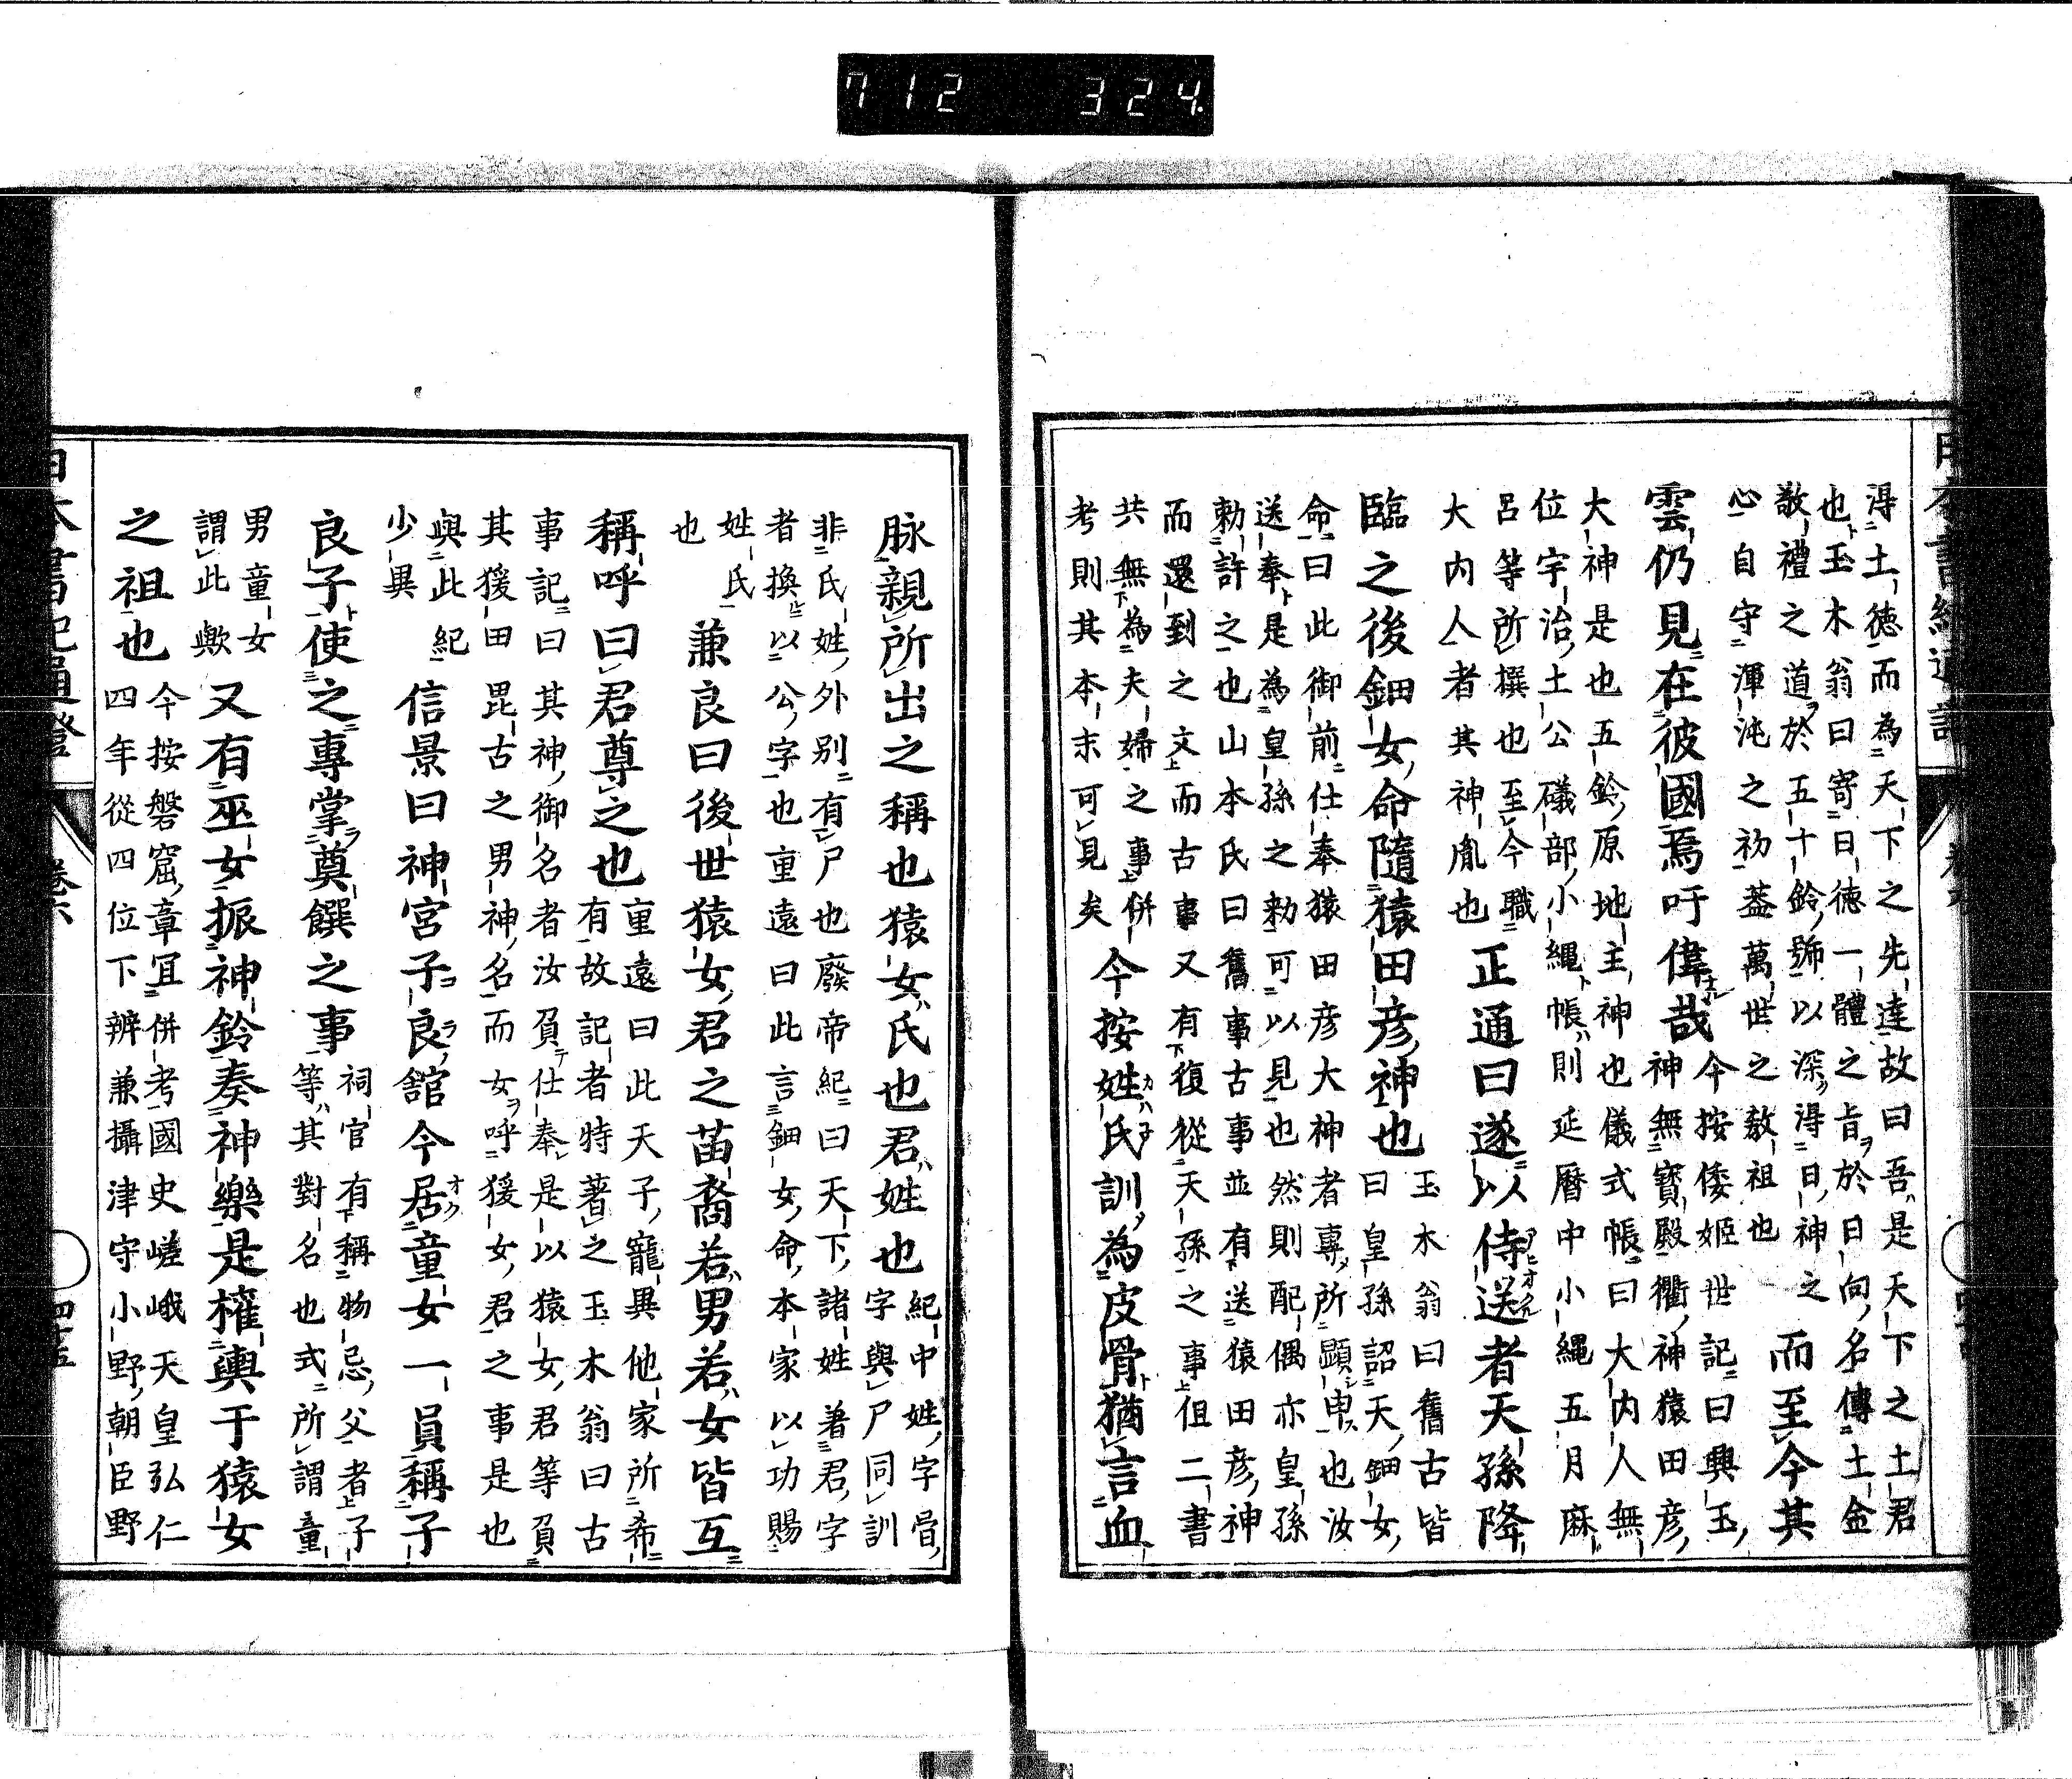 712 324
得土徳而為天下之先達故曰吾是天下之土君
也玉木翁曰寄日徳一體之旨於日向名傳土金
敬禮之道於五十鈴號以深得日神之
心自守渾沌之初蓋萬世之敎祖也
而至今其
雲仍見在彼國焉吁偉哉
今按倭姬世記曰興玉
神無寶殿衢神猿田彦
大神是也五鈴原地主神也儀式帳曰大内人無
位宇治土公礒部小繩帳則延曆中小繩五月麻
呂等所撰也至今職
大内人者其神胤也
正通曰遂以侍送者天孫降
臨之後鈿女命隨猿田彦神也
玉木翁曰舊古皆
曰皇孫詔天鈿女
命曰此御前仕奉猿田彦大神者專所顯申也汝
送奉是為皇孫之勅可以見也然則配偶亦皇孫
勅許之也山本氏曰舊事古事並有送猿田彦神
而還到之文而古事又有復從天孫之事但二書
共無為夫婦之事併
考則其本末可見矣
今按姓氏訓為皮骨猶言血
脉親所出之稱也猿女氏也君姓也
紀中姓字骨
字與尸同訓
非氏姓外别有尸也廢帝紀曰天下諸姓着君字
者換以公字也重遠曰此言鈿女命本家以功賜
姓氏
也
兼良曰後世猿女君之苗裔若男若女皆互
稱呼曰君尊之也
重遠曰此天子寵異他家所希
有故記者特著之玉木翁曰古
事記曰其神御名者汝負仕奉是以猿女君等負
其猨田毘古之男神名而女呼猨女君之事是也
與此紀
少異
信景曰神宮子良舘今居童女一員稱子
良子使之專掌奠饌之事
祠官有稱物忌父者子
等其對名也式所謂童
男童女
謂此歟
又有巫女振神鈴奏神樂是權輿于猿女
之祖也
今按磐窟章冝併考國史嵯峨天皇弘仁
四年從四位下辨兼攝津守小野朝臣野